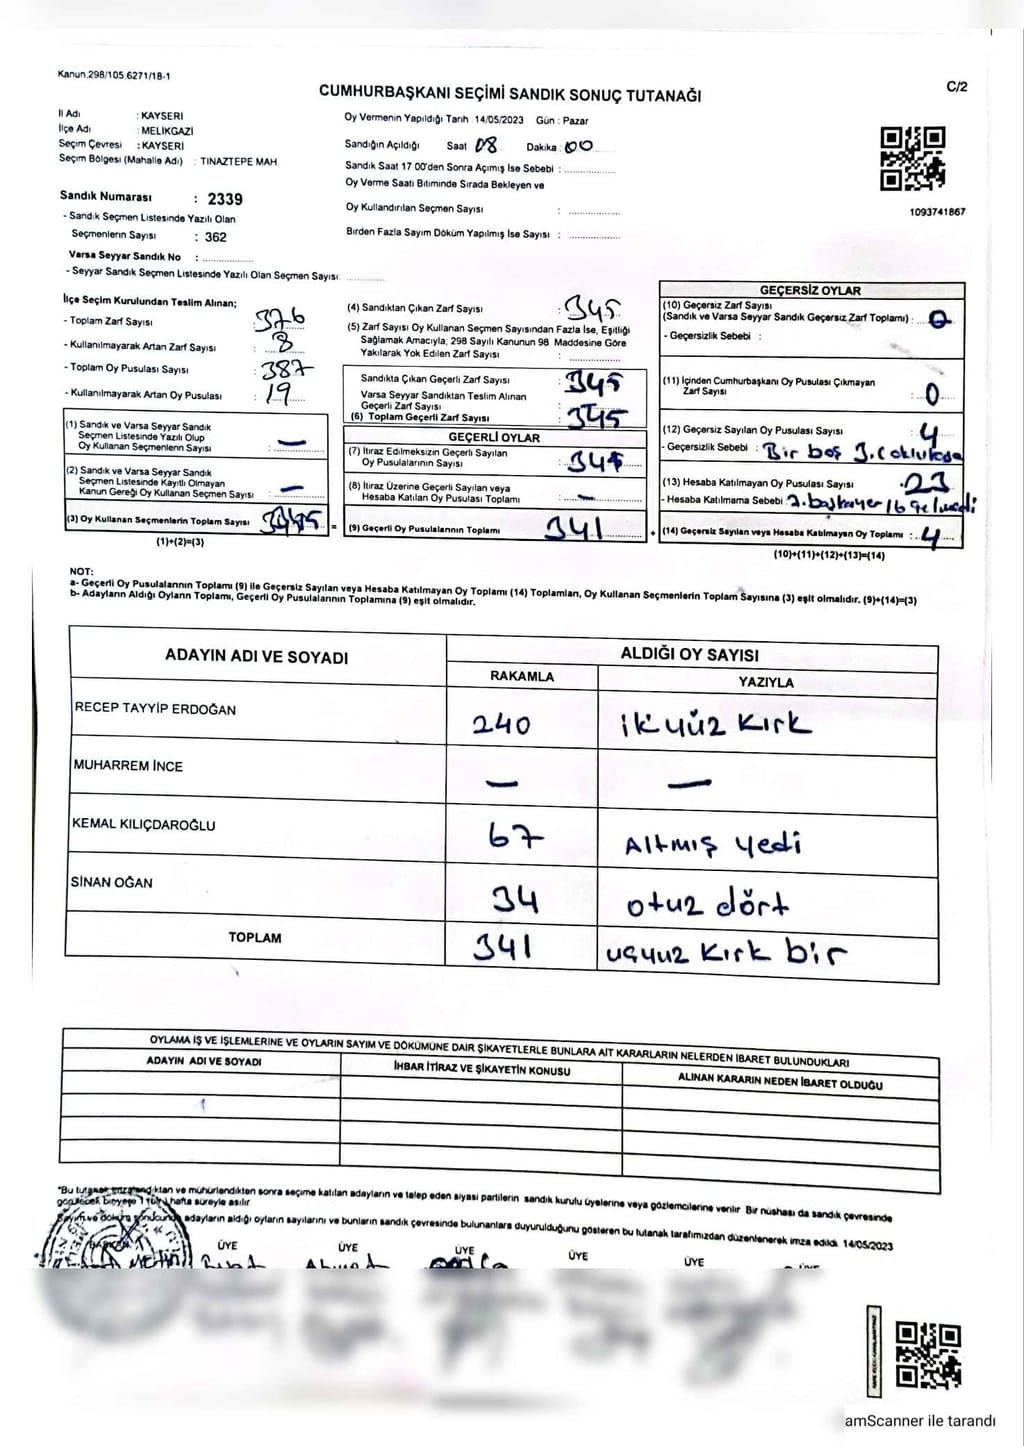 Kanun.298/105.6271/18-1
C/2
CUMHURBAŞKANI SEÇİMİ SANDIK SONUÇ TUTANAĞI
İl Adı : KAYSERİ
İlçe Adı : MELİKGAZİ
Seçim Çevresi : KAYSERİ
Seçim Bölgesi (Mahalle Adı) : TINAZTEPE MAH.
Sandık Numarası : 2339
- Sandık Seçmen Listesinde Yazılı Olan
Seçmenlerin Sayısı : 362
Varsa Seyyar Sandık No :
- Seyyar Sandık Seçmen Listesinde Yazılı Olan Seçmen Sayısı:
Oy Vermenin Yapıldığı Tarih :14/05/2023 Gün : Pazar
Sandığın Açıldığı Saat 08 Dakika : 00
Sandık Saat 17:00'den Sonra Açılmış İse Sebebi :
Oy Verme Saati Bitiminde Sırada Bekleyen ve
Oy Kullandırılan Seçmen Sayısı :
Birden Fazla Sayım Döküm Yapılmış İse Sayısı :
1093741867
İlçe Seçim Kurulundan Teslim Alınan;
- Toplam Zarf Sayısı : 376
- Kullanılmayarak Artan Zarf Sayısı : 8
- Toplam Oy Pusulası Sayısı : 387
- Kullanılmayarak Artan Oy Pusulası : 19
(1) Sandık ve Varsa Seyyar Sandık
Seçmen Listesinde Yazılı Olup
Oy Kullanan Seçmenlerin Sayısı : —
(2) Sandık ve Varsa Seyyar Sandık
Seçmen Listesinde Kayıtlı Olmayan
Kanun Gereği Oy Kullanan Seçmen Sayısı : —
(3) Oy Kullanan Seçmenlerin Toplam Sayısı
(1)+(2)=(3)
(4) Sandıktan Çıkan Zarf Sayısı : 345
(5) Zarf Sayısı Oy Kullanan Seçmen Sayısından Fazla İse, Eşitliği
Sağlamak Amacıyla, 298 Sayılı Kanunun 98. Maddesine Göre
Yakılarak Yok Edilen Zarf Sayısı :
Sandıkta Çıkan Geçerli Zarf Sayısı : 345
Varsa Seyyar Sandıktan Teslim Alınan
Geçerli Zarf Sayısı :
(6) Toplam Geçerli Zarf Sayısı : 345
GEÇERLİ OYLAR
(7) İtiraz Edilmeksizin Geçerli Sayılan
Oy Pusulalarının Sayısı : 345
(8) İtiraz Üzerine Geçerli Sayılan veya
Hesaba Katılan Oy Pusulası Toplamı : —
= (9) Geçerli Oy Pusulalarının Toplamı 341
GEÇERSİZ OYLAR
(10) Geçersiz Zarf Sayısı
(Sandık ve Varsa Seyyar Sandık Geçersiz Zarf Toplamı) : 0
- Geçersizlik Sebebi :
(11) İçinden Cumhurbaşkanı Oy Pusulası Çıkmayan
Zarf Sayısı : 0
(12) Geçersiz Sayılan Oy Pusulası Sayısı : 4
- Geçersizlik Sebebi : Bir boş 3.
(13) Hesaba Katılmayan Oy Pusulası Sayısı : 23
- Hesaba Katılmama Sebebi
+ (14) Geçersiz Sayılan veya Hesaba Katılmayan Oy Toplamı : 4
(10)+(11)+(12)+(13)=(14)
NOT:
a- Geçerli Oy Pusulalarının Toplamı (9) ile Geçersiz Sayılan veya Hesaba Katılmayan Oy Toplamı (14) Toplamları, Oy Kullanan Seçmenlerin Toplam Sayısına (3) eşit olmalıdır. (9)+(14)=(3)
b- Adayların Aldığı Oyların Toplamı, Geçerli Oy Pusulalarının Toplamına (9) eşit olmalıdır.
ADAYIN ADI VE SOYADI
ALDIĞI OY SAYISI
RAKAMLA YAZIYLA
RECEP TAYYİP ERDOĞAN 240 ikiyüz kırk
MUHARREM İNCE — —
KEMAL KILIÇDAROĞLU 67 Altmış yedi
SİNAN OĞAN 34 otuz dört
TOPLAM 341 uçyuz kırk bir
OYLAMA İŞ VE İŞLEMLERİNE VE OYLARIN SAYIM VE DÖKÜMÜNE DAİR ŞİKAYETLERLE BUNLARA AİT KARARLARIN NELERDEN İBARET BULUNDUKLARI
ADAYIN ADI VE SOYADI İHBAR İTİRAZ VE ŞİKAYETİN KONUSU ALINAN KARARIN NEDEN İBARET OLDUĞU
ve mühürlendikten sonra seçime katılan adayların ve talep eden siyasi partilerin sandık kurulu üyelerine veya gözlemcilerine verilir. Bir nüshası da sandık çevresinde
hafta süreyle asılır.
adayların aldığı oyların sayılarını ve bunların sandık çevresinde bulunanlara duyurulduğunu gösteren bu tutanak tarafımızdan düzenlenerek imza edildi. 14/05/2023
ÜYE ÜYE ÜYE ÜYE ÜYE
amScanner ile tarandı